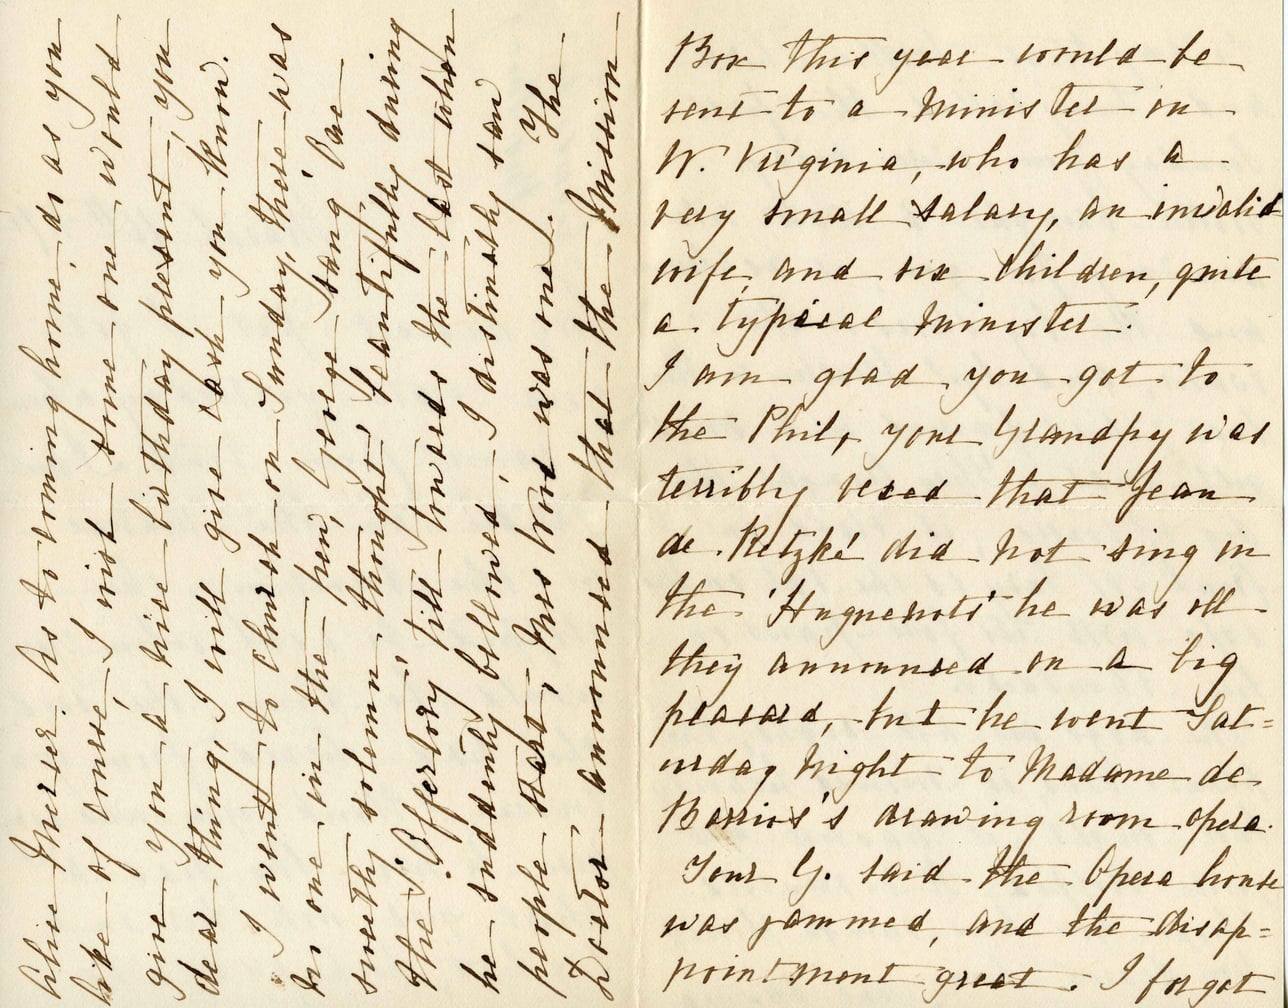 Mercer. As to coming home, do as you
like of course, I wish some one would
give you a nice birthday present, you
dear thing, I will give cash you know.
I went to Church on Sunday, there was
no one in the pew, George sang Oar
sweetly solemn thought, beautifully during
the Offertory, till towards the last when
he suddenly bellowed, I distinctly saw
people start, Mrs was one. The
Doctor announced that the Mission
Box this year would be
sent to a Minister in
W. Virginia, who has a
very small salary, an invalid
wife, and six children, quite
a typical minister.
I am glad you got to
the Phil, your Grandpy was
terribly vexed that Jean
de Retzké did not sing in
the 'Huguenots' he was ill
they announced on a big
placard, but he went Sat=
urday Night to Madame de
Barrios's drawing room opera.
Your G. said the Opera house
was jammed, and the disap=
pointment great. I forgot